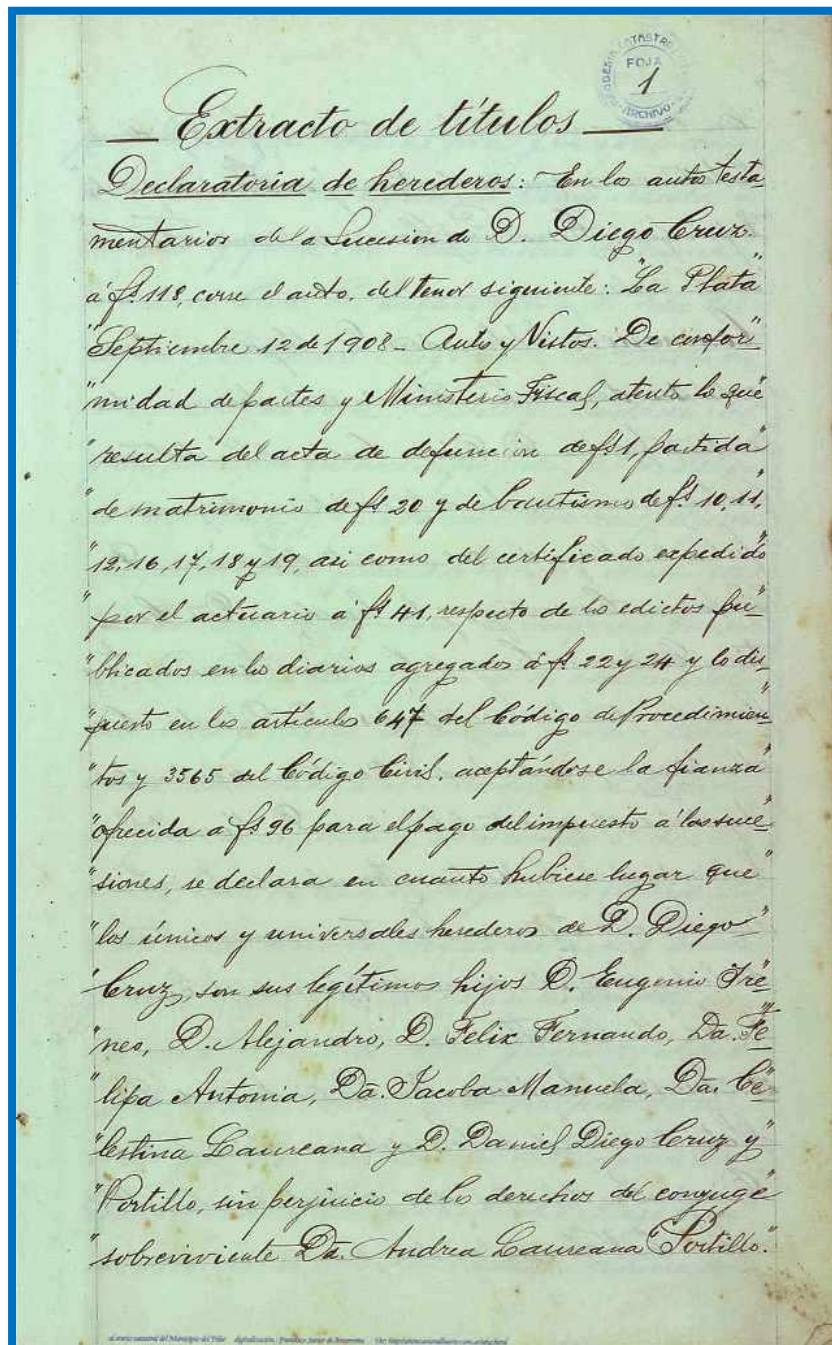 FOJA
1
ARCHIVO
Extracto de títulos
Declaratoria de herederos: En los autos testa
mentarios de la Sucesion de D. Diego Cruz.
á fs. 118, corre el auto, del tenor siguiente: "La Plata"
"Septiembre 12 de 1908_ Autos y Vistos. De confor"
"midad de partes y Ministerio Fiscal, atento lo que"
"resulta del acta de defuncion de fs 1, partida"
"de matrimonio de fs 20 y de bautismo de fs. 10, 11,"
"12, 16, 17, 18 y 19, asi como del certificado expedido"
"por el actuario á fs 41, respecto de los edictos pu"
"blicados en los diarios agregados á fs. 22 y 24 y lo dis"
"puesto en los artículos 647 del Código de Procedimien"
"tos y 3565 del Código Civil, aceptándose la fianza"
"ofrecida á fs 96 para el pago del impuesto á las suce"
"siones, se declara en cuanto hubiese lugar que"
"los únicos y universales herederos de D. Diego"
"Cruz, son sus legítimos hijos D. Eugenio Ire"
"neo, D. Alejandro, D. Felix Fernando, Da. Fe"
"lipa Antonia, Da. Jacoba Manuela, Da. Ce"
"lestina Laureana y D. Daniel Diego Cruz y"
"Portillo, sin perjuicio de los derechos del conyuge"
"sobreviviente Da. Andrea Laureana Portillo."